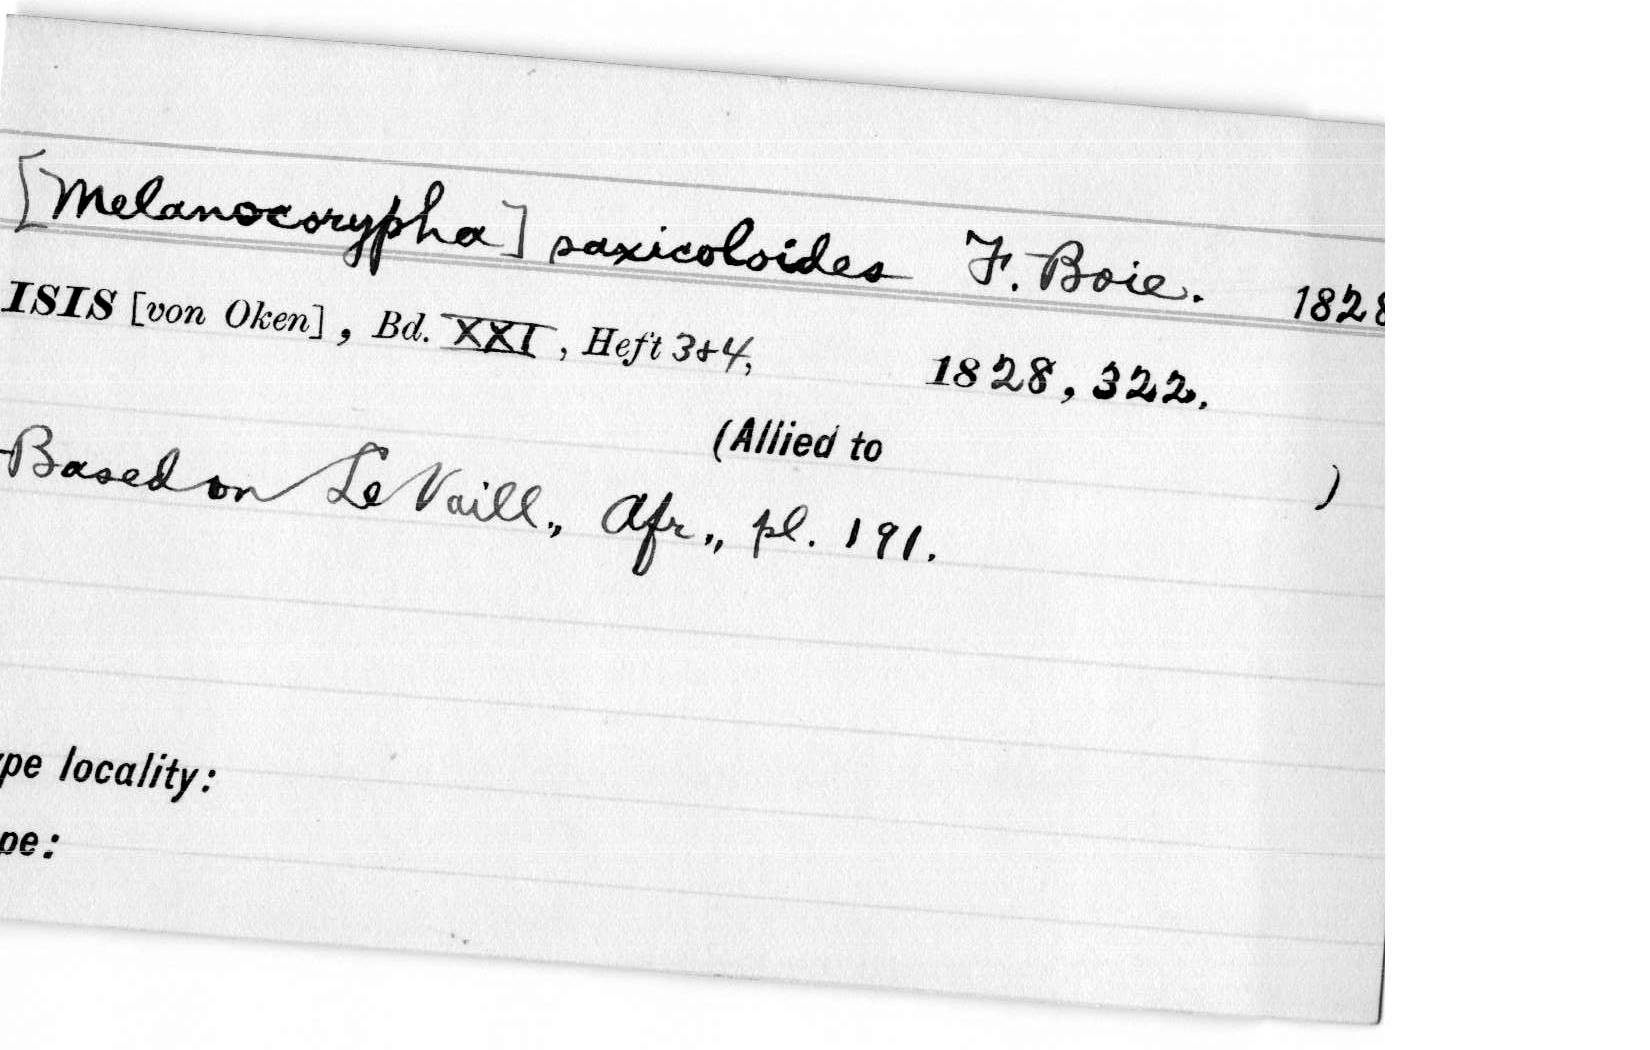 [Melanocorypha] saxicoloides F. Boie. 1828
ISIS [von Oken], Bd. XXI, Heft 3+4, 1828, 322.
(Allied to )
Based on Le Vaill., Afr., pl. 191.
ype locality:
pe: